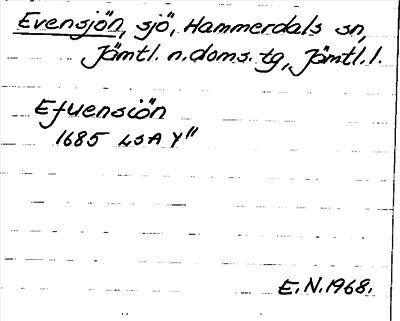 Evensjön, sjö, Hammerdals sn,
Jämtl. n. doms. tg, Jämtl. l.
Efuensiön
1685 LSA Y"
E. N. 1968.